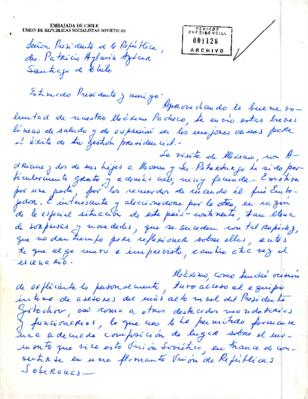 EMBAJADA DE CHILE
UNION DE REPUBLICAS SOCIALISTAS SOVIETICAS
PERIODO
PRESIDENCIAL
001126
ARCHIVO
Señor Presidente de la República,
don Patricio Aylwin Azócar
Santiago de Chile
Estimado Presidente y amigo:
Aprovechando la buena vo-
luntad de nuestro Máximo Pacheco, te envío estas breves
líneas de saludo y de expresión de los mejores deseos para
el éxito de tu gestión presidencial.
La visita de Máximo, con A-
driana y dos de sus hijos a Moscú y San Petersburgo ha sido par-
ticularmente grata y además, muy fecunda. Emotiva
por una parte, por los recuerdos de cuando él fue Emba-
jador, e interesante y aleccionadora por la otra, en razón
de la especial situación de este país-continente, tan llena
de sorpresas y novedades, que se suceden con tal rapidez,
que no dan tiempo para reflexionar sobre ellas, antes
de que algo nuevo e imprevisto, cambie otra vez el
escenario.
Máximo, como tendrá ocasión
de explicarte personalmente, tuvo acceso al equipo
íntimo de asesores del más alto nivel del Presidente
Gorbachov, así como a otros destacados mandatarios
y funcionarios, lo que nos ha permitido formarnos
una adecuada composición de lugar sobre el mo-
mento que vive esta Unión Soviética, en trance de con-
vertirse en una flamante Unión de Repúblicas
Soberanas.-